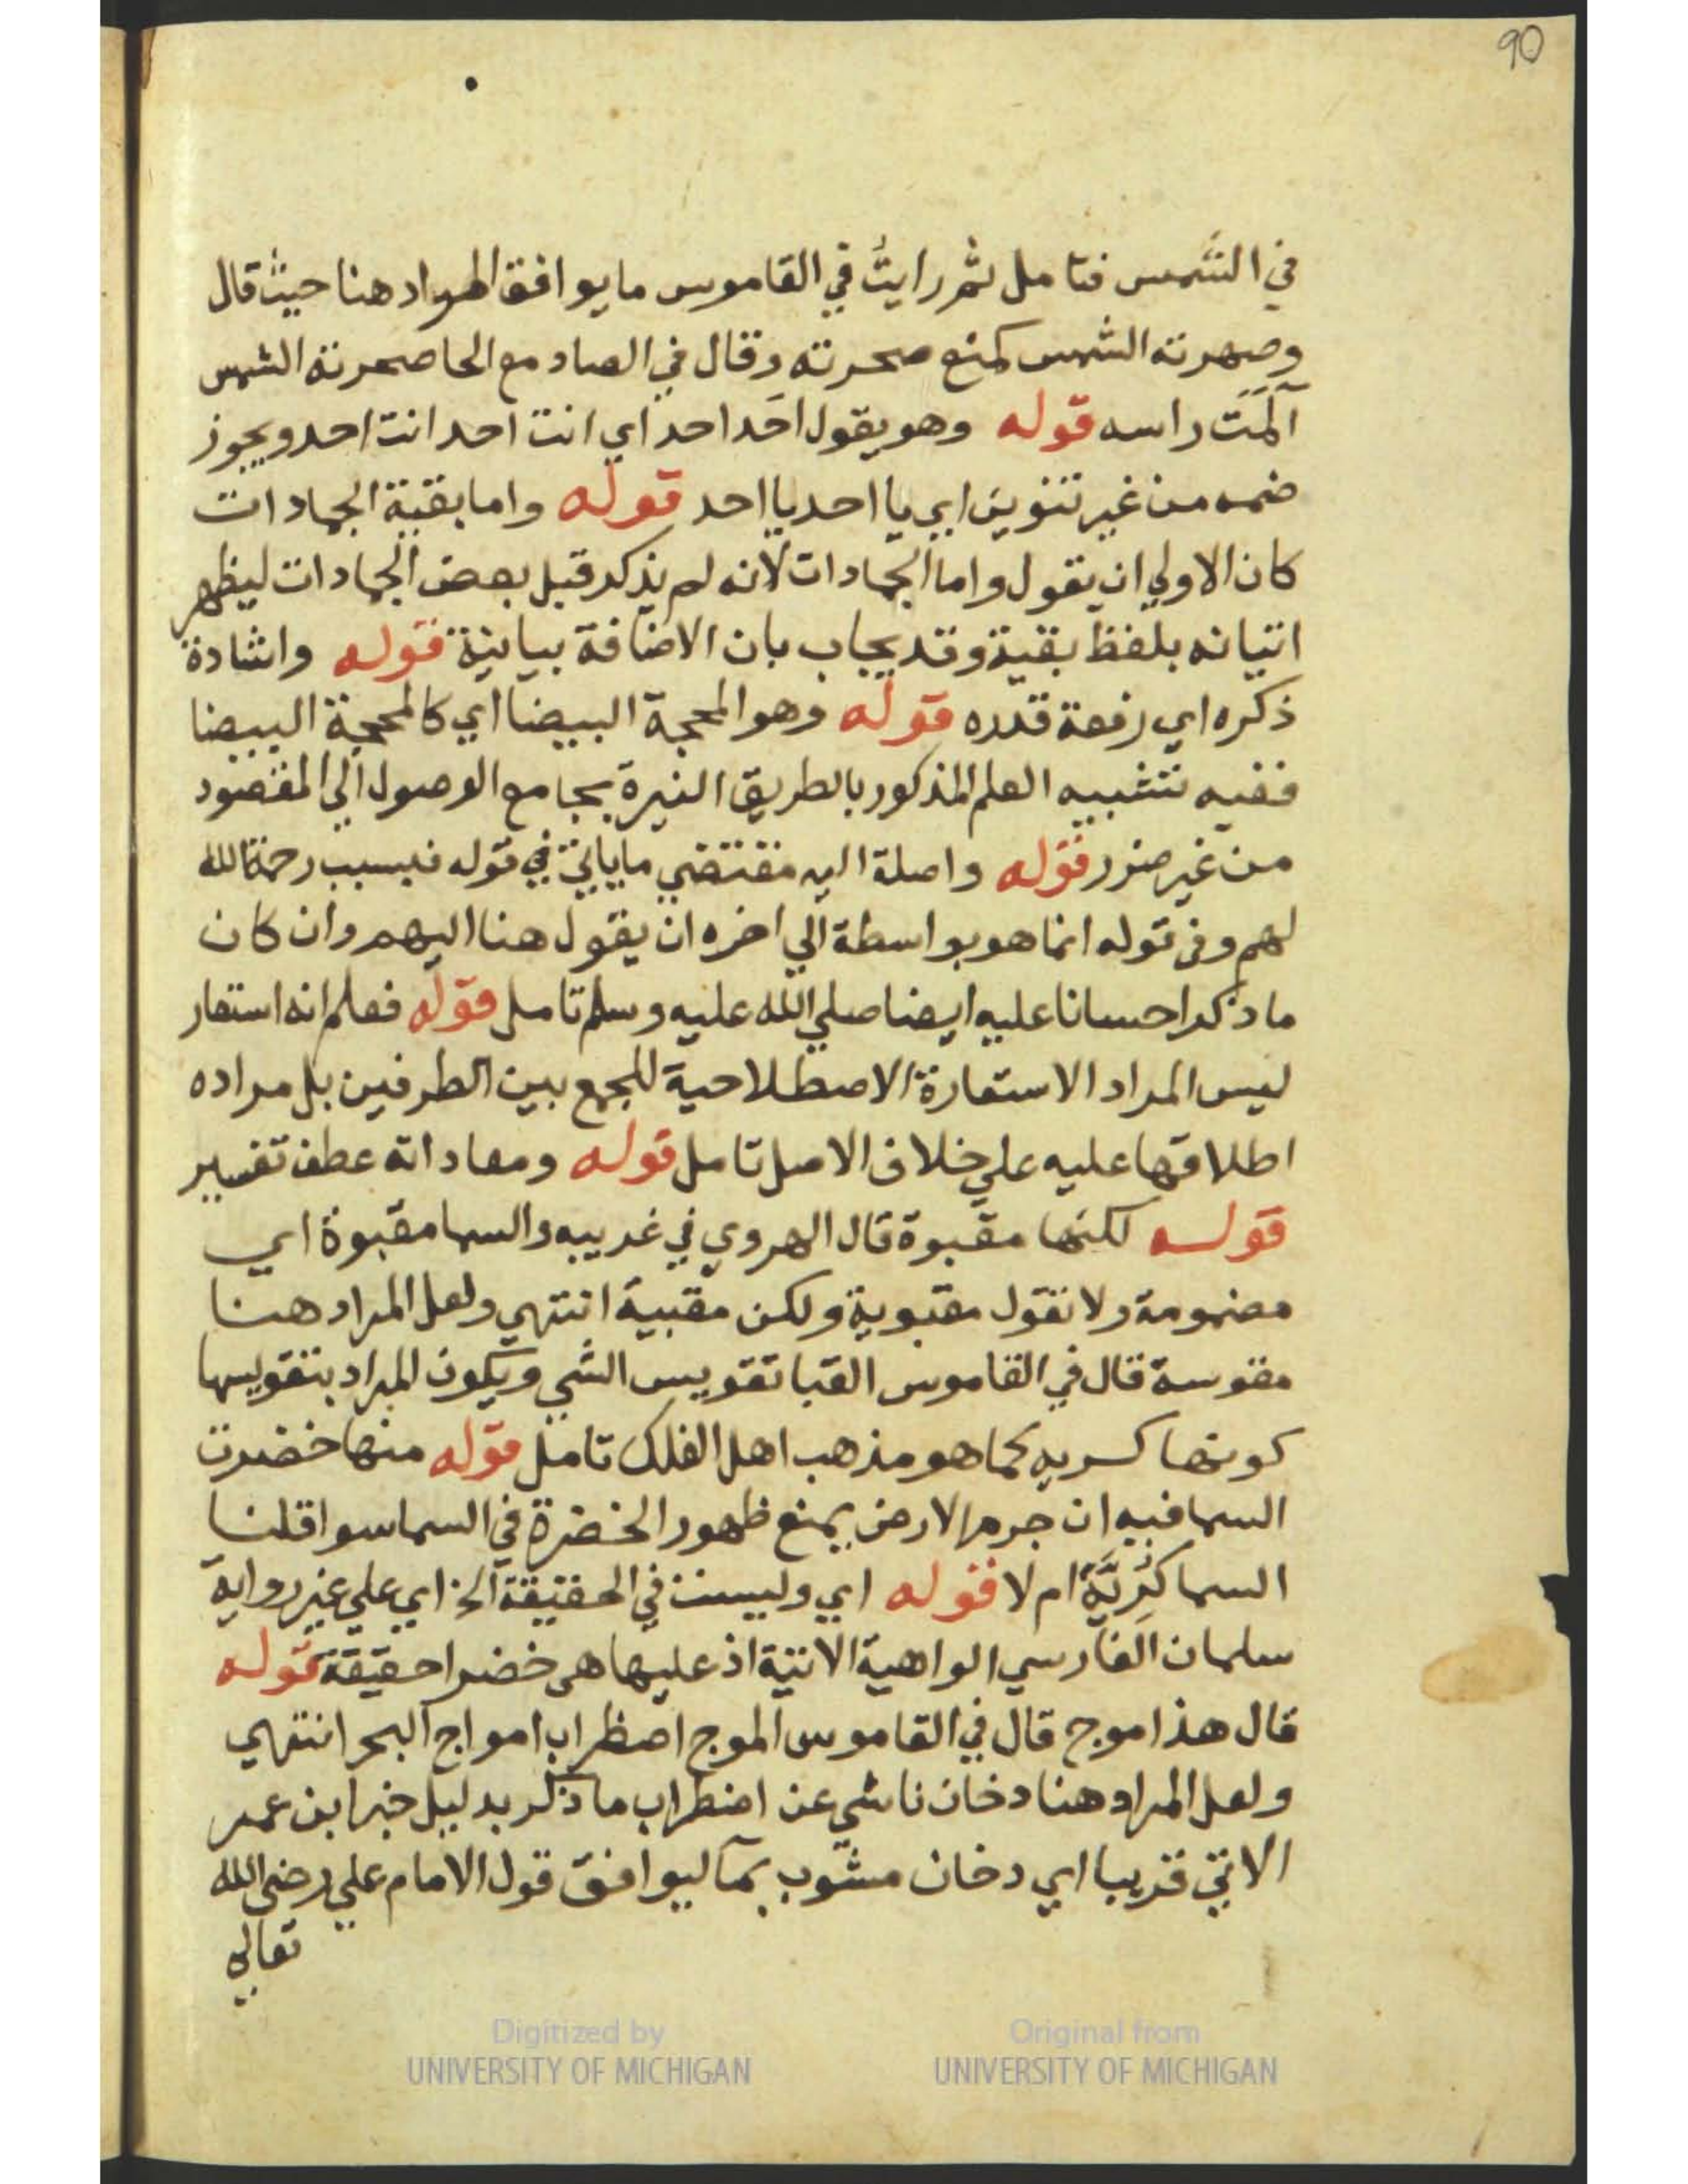 90
في الشمس فتامل ثم رايتُ في القاموس ما يوافق المراد هنا حيث قال
وصهرته الشمس كمنع صحرته وقال في الصاد مع الحا صحرته الشمس
آلمَت راسه قوله وهو يقول احَد احد اي انت احد انت احد ويجوز
ضمه من غير تنوين اي يا احد يا احد قوله واما بقية الجمادات
كان الاولي ان يقول واما الجمادات لانه لم يذكر قبل بعض الجمادات ليظهر
اتيانه بلفظ بقية وقد يجاب بان الاضافة بيانية قوله واشادة
ذكره اي رفعة قدره قوله وهو المحجة البيضا اي كالمحجة البيضا
ففيه تشبيه العلم المذكور بالطريق النيرة بجامع الوصول الي المقصود
من غير ضرر قوله واصلة اليه مقتضي ما ياتي في قوله فبسبب رحمة الله
لهم وفي قوله انما هو بواسطة الي اخره ان يقول هنا اليهم وان كان
ما ذكر احسانا عليه ايضا صلي الله عليه وسلم تامل قوله فعلم انه استعار
ليس المراد الاستعارة الاصطلاحية للجمع بين الطرفين بل مراده
اطلاقها عليه علي خلاف الاصل تامل قوله ومعاداته عطف تفسير
قوله لكنها مقبوة قال الهروي في غريبه والسما مقبوة اي
مضمومة ولا نقول مقبوية ولكن مقبية انتهي ولعل المراد هنا
مقوسة قال في القاموس القبا تقويس الشي ويكون المراد بتقويسها
كونها كسريه كما هو مذهب اهل الفلك تامل قوله منها خضرت
السما فيه ان جرم الارض يمنع ظهور الخضرة في السما سوا قلنا
السما كُرِيَّة ام لا قوله اي وليست في الحقيقة الخ اي علي غير رواية
سلمان الفارسي الواهية الاتية اذ عليها هي خضرا حقيقة قوله
قال هذا موج قال في القاموس الموج اضطراب امواج البحر انتهي
ولعل المراد هنا دخان ناشي عن اضطراب ما ذكر بدليل خبر ابن عمر
الاتي قريبا اي دخان مشوب بمآ ليوافق قول الامام علي رضي الله
تعالي
Digitized by
UNIVERSITY OF MICHIGAN
Original from
UNIVERSITY OF MICHIGAN